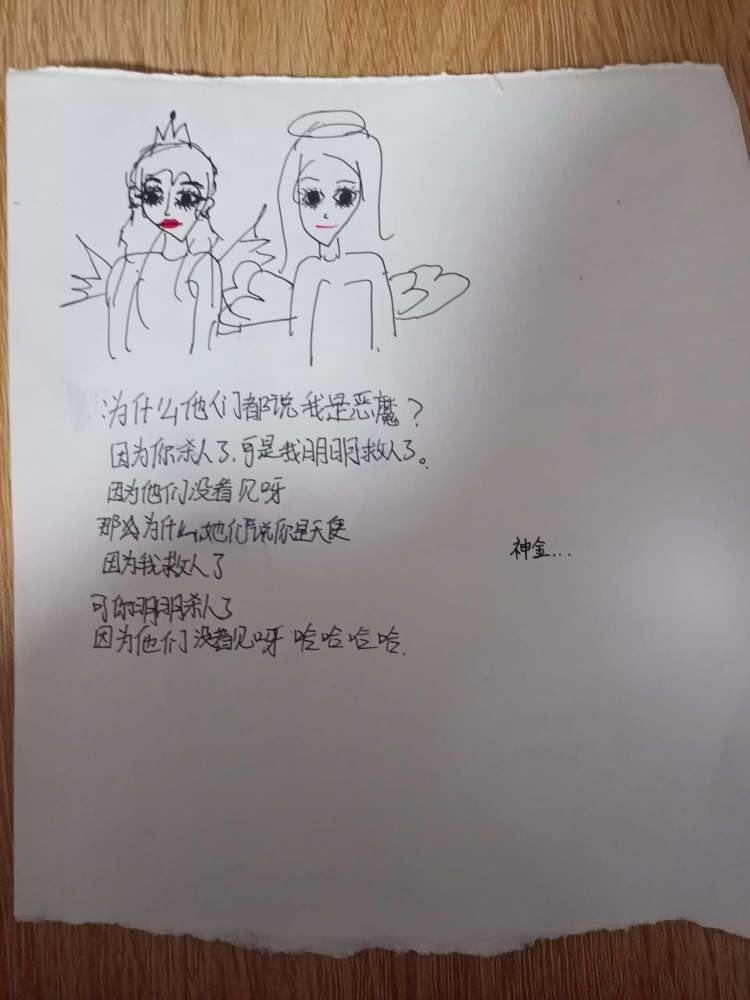 为什么他们都说我是恶魔？
因为你杀人了，可是我明明救人了。
因为他们没看见呀
那为什么她们说你是天使
因为我救人了
可你明明杀人了
因为他们没看见呀 哈哈哈哈.
神金...